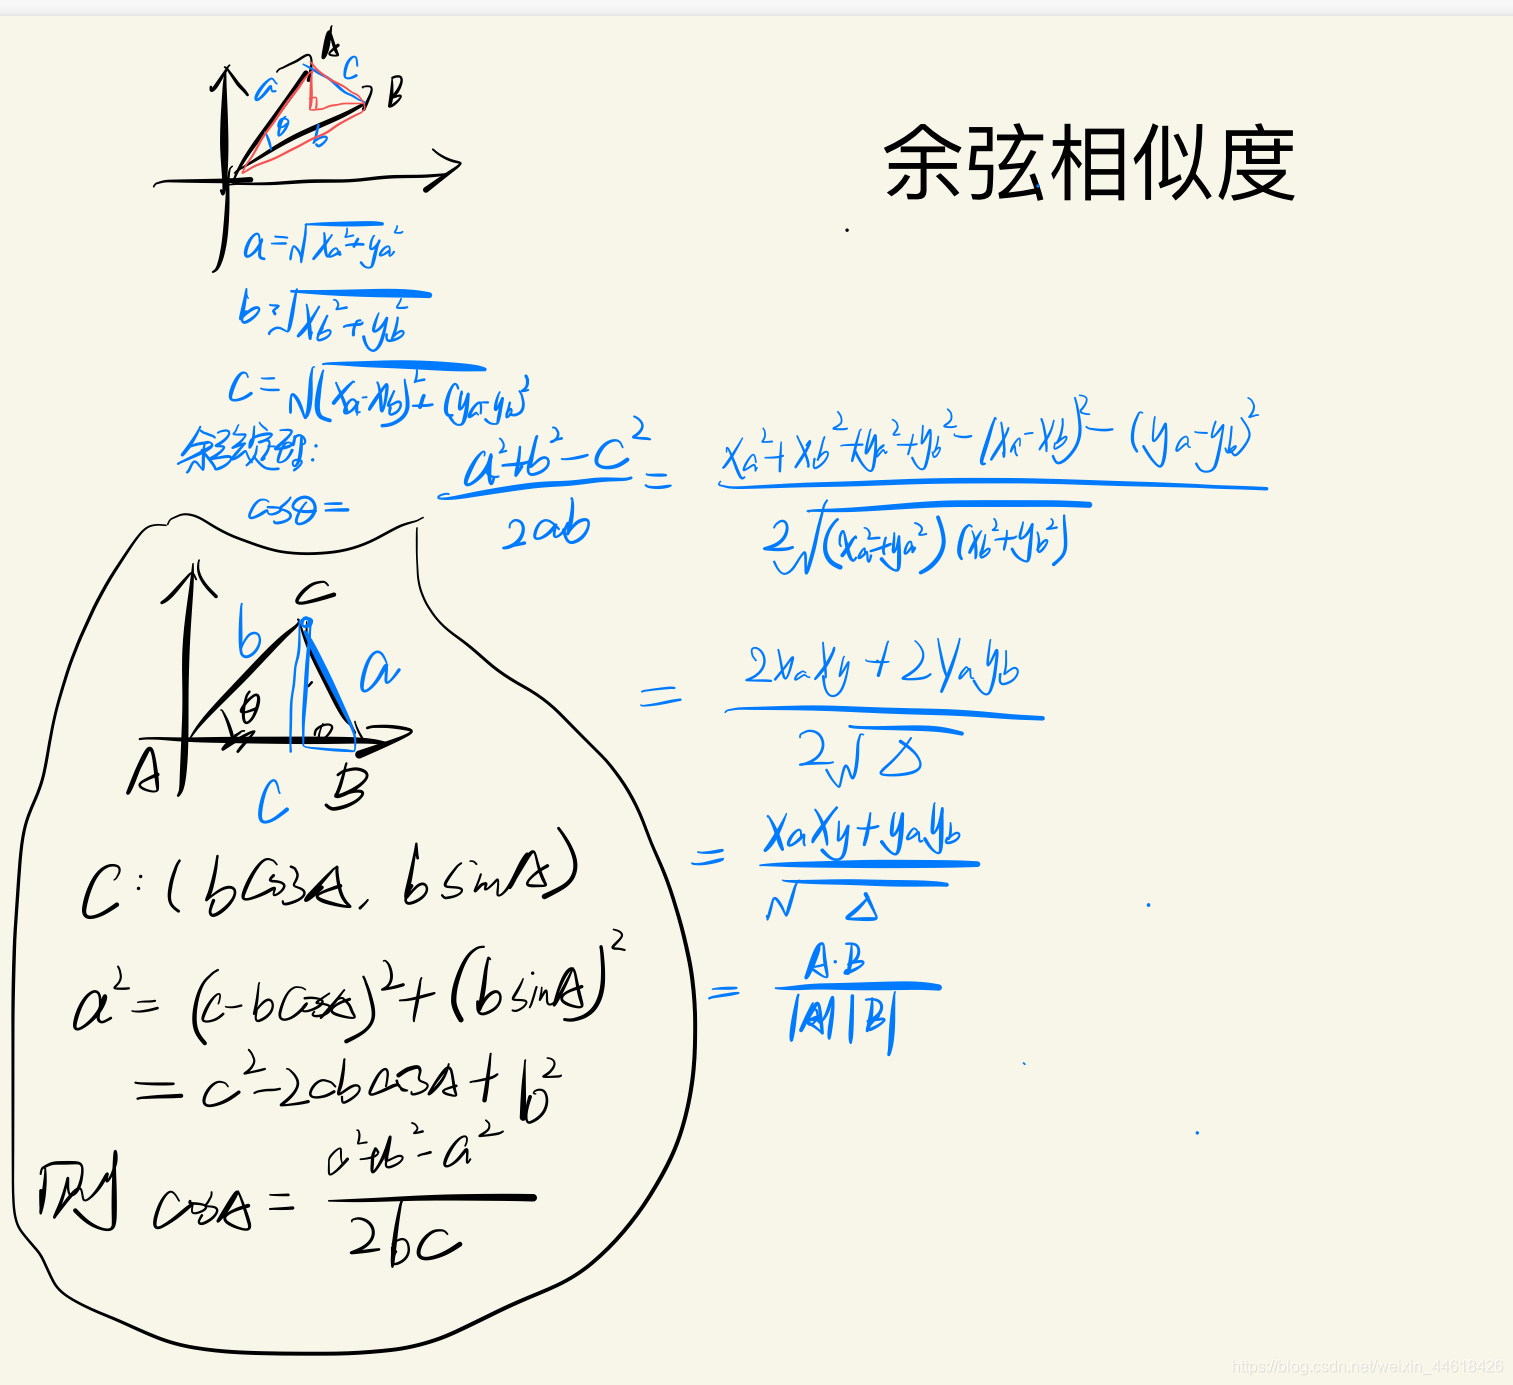 余弦相似度
A
a
c
B
θ
b
a=√(xₐ²+yₐ²)
b=√(x_b²+y_b²)
c=√((xₐ-x_b)²+(yₐ-y_b)²)
余弦定理:
cosθ= (a²+b²-c²)/(2ab) = (xₐ²+x_b²+yₐ²+y_b²-(xₐ-x_b)²-(yₐ-y_b)²)/(2√((xₐ²+yₐ²)(x_b²+y_b²)))
= (2xₐx_y+2yₐy_b)/(2√Δ)
= (xₐx_y+yₐy_b)/(√Δ)
= (A·B)/(|A||B|)
C
b
a
θ
A
c
B
C:(bcosA, bsinA)
a²=(c-bcosA)²+(bsinA)²
=c²-2cbcosA+b²
则 cosA= (c²+b²-a²)/(2bc)
https://blog.csdn.net/weixin_44618426